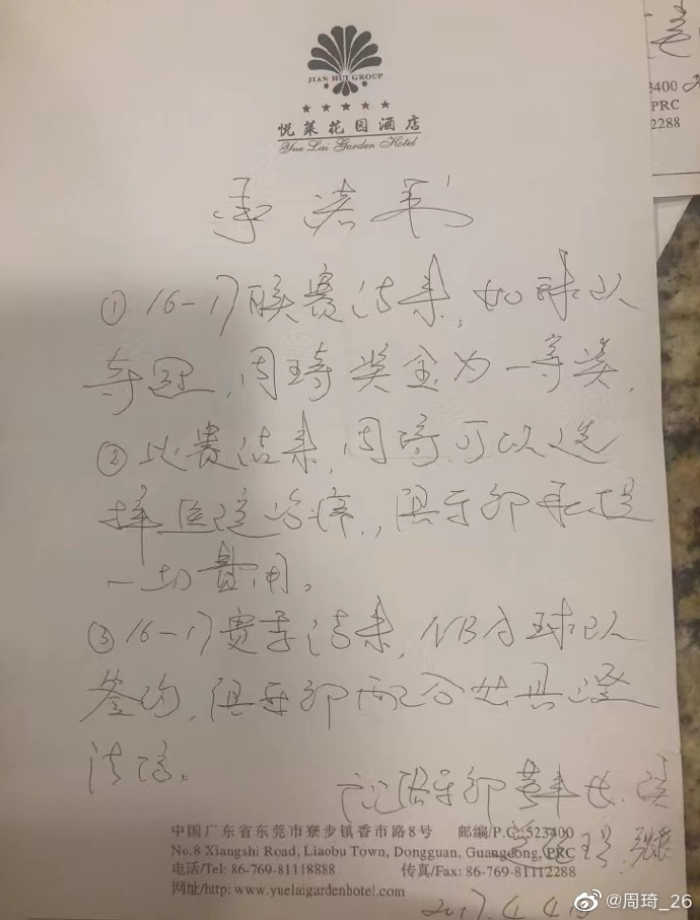 3400
PRC
2288
JIAN HUI GROUP
悦莱花园酒店
Yue Lai Garden Hotel
承诺书
① 16-17联赛结束,如球队
夺冠,周琦奖金为一等奖。
② 比赛结束,周琦可以选
择医院治疗,俱乐部承担
一切费用。
③ 16-17赛季结束,NBA球队
签约,俱乐部配合出具澄
清信。
俱乐部董事长
中国广东省东莞市寮步镇香市路8号 邮编/P.C: 523400
No.8 Xiangshi Road, Liaobu Town, Dongguan, Guangdong, PRC
电话/Tel: 86-769-81118888 传真/Fax: 86-769-81112288
网址/http: www.yuelaigardenhotel.com
2017.4.4
@周琦_26